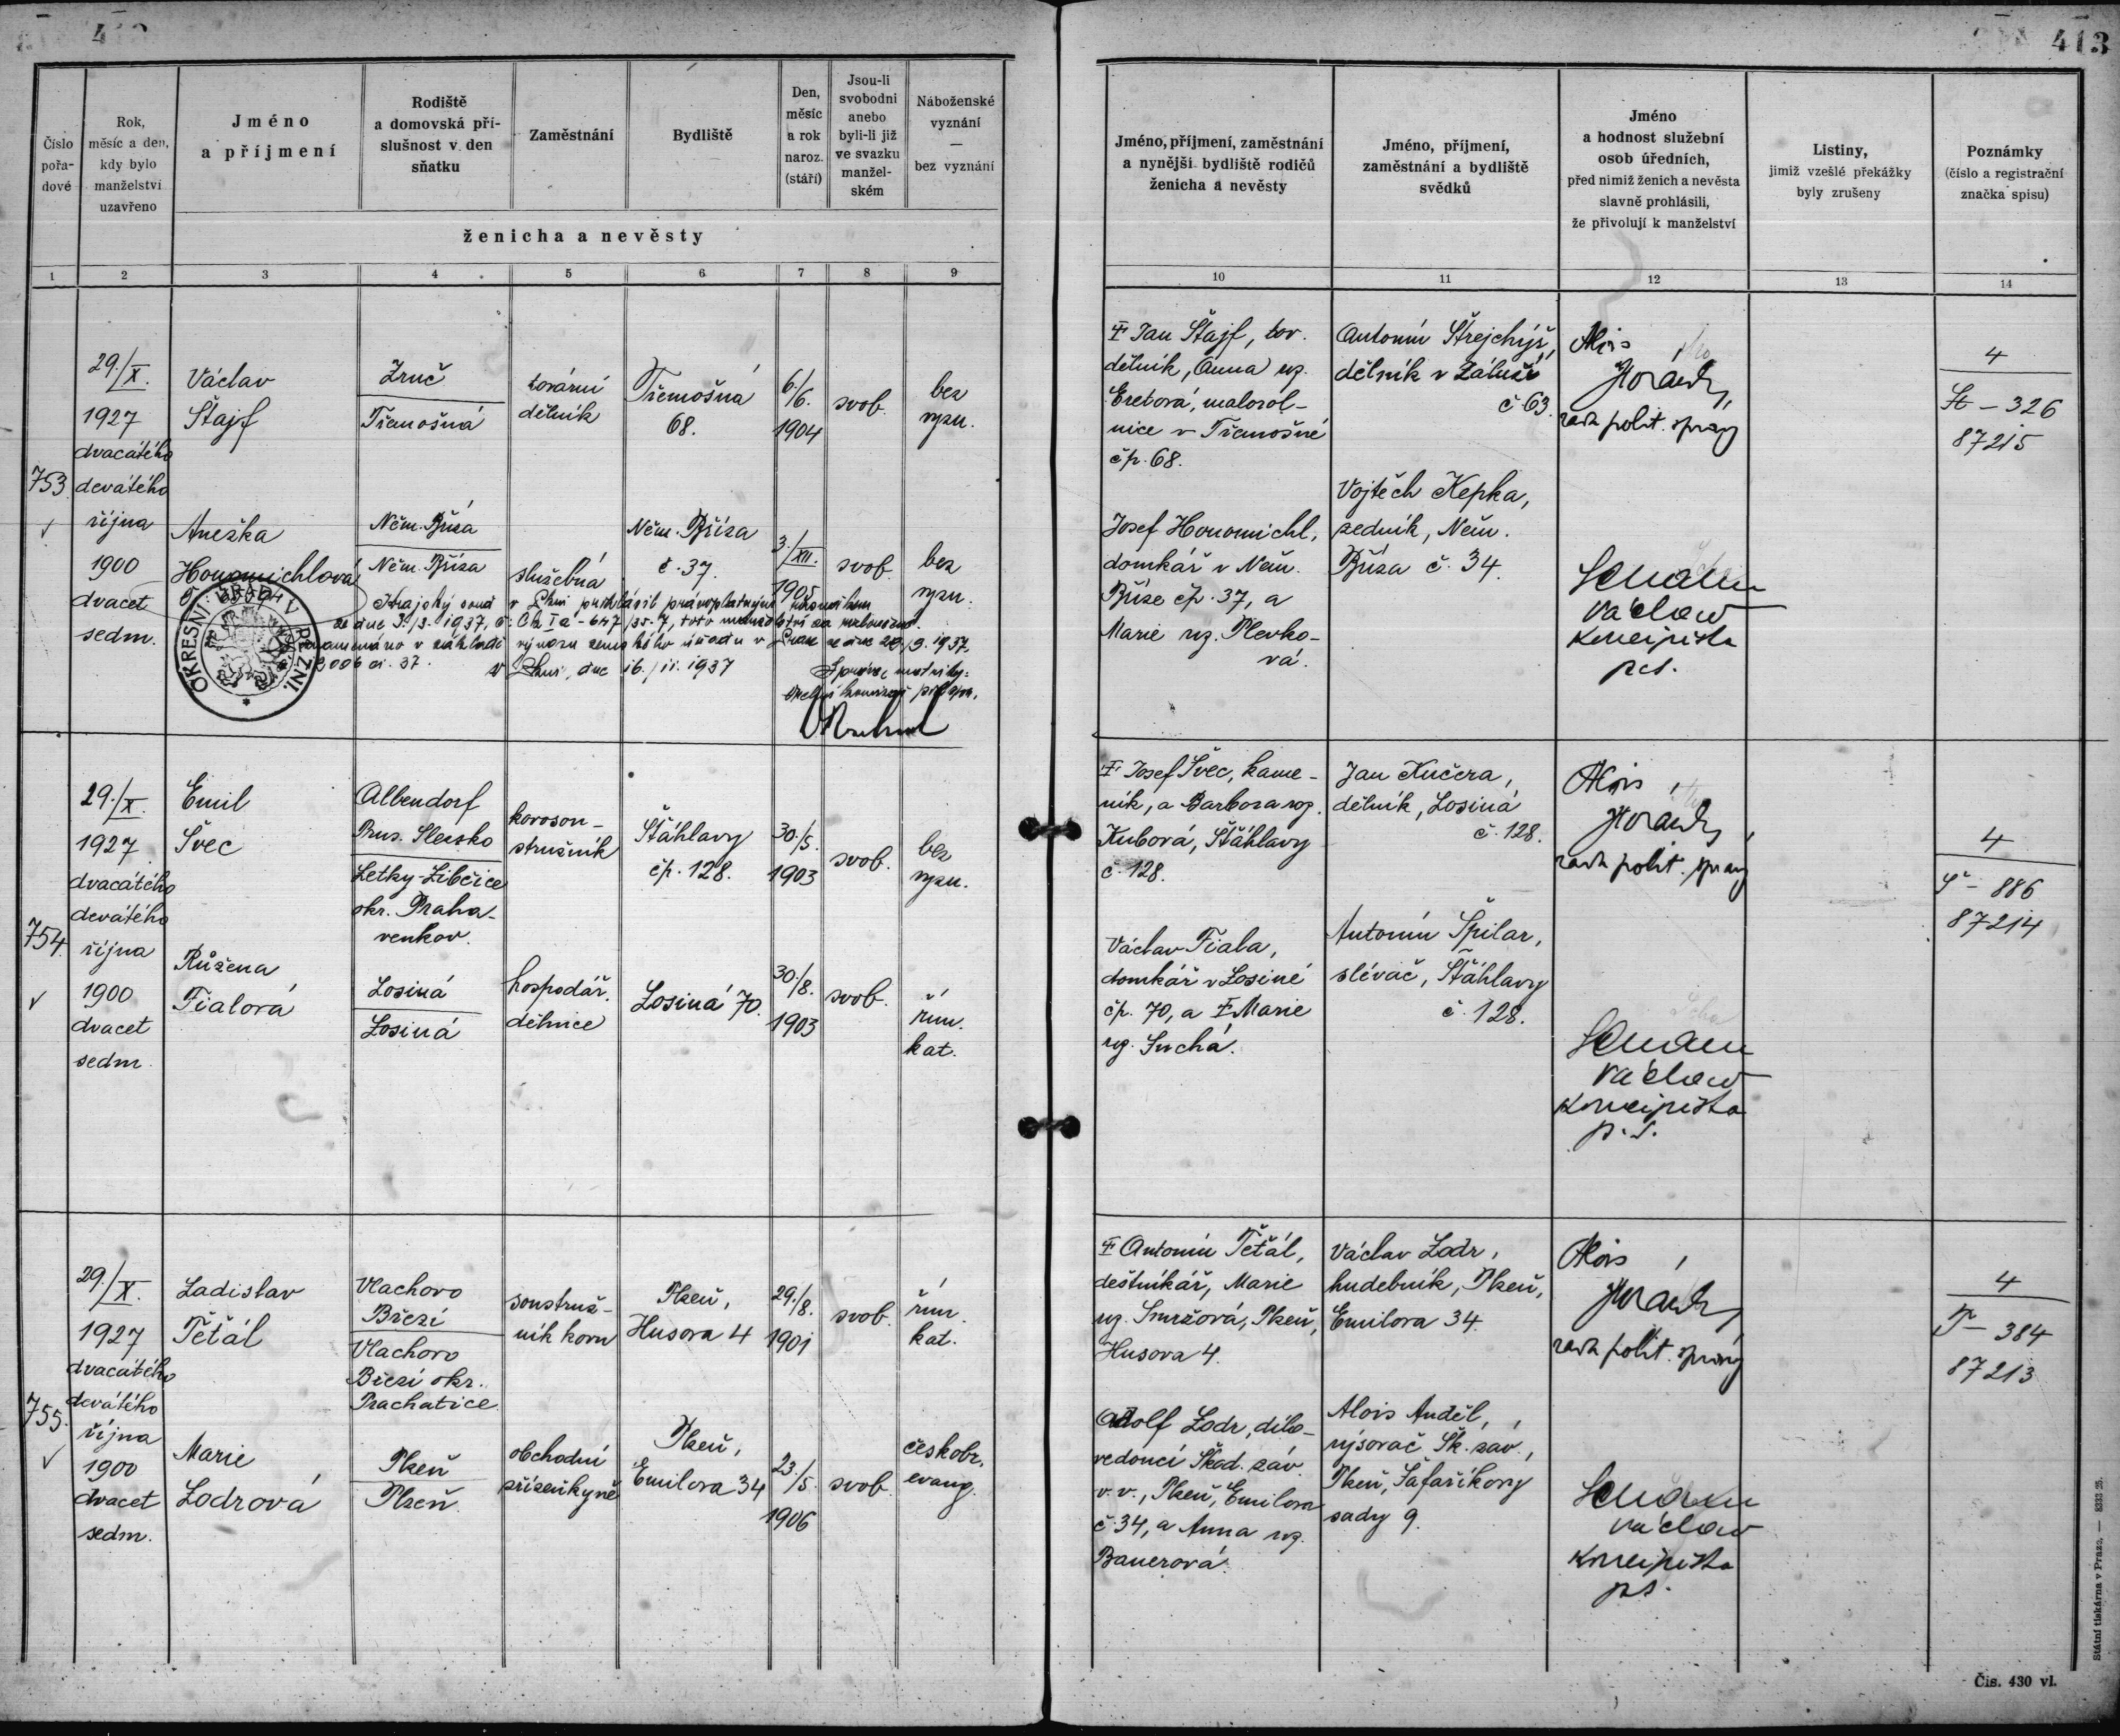 413
Číslo pořa-dové
Rok, měsíc a den, kdy bylo manželství uzavřeno
Jméno a příjmení
Rodiště a domovská pří-slušnost v den sňatku
Zaměstnání
Bydliště
Den, měsíc a rok naroz. (stáří)
Jsou-li svobodni anebo byli-li již ve svazku manžel-ském
Náboženské vyznání — bez vyznání
ženicha a nevěsty
1 2 3 4 5 6 7 8 9
Jméno, příjmení, zaměstnání a nynější bydliště rodičů ženicha a nevěsty
Jméno, příjmení, zaměstnání a bydliště svědků
Jméno a hodnost služební osob úředních, před nimiž ženich a nevěsta slavně prohlásili, že přivolují k manželství
Listiny, jimiž vzešlé překážky byly zrušeny
Poznámky (číslo a registrační značka spisu)
10 11 12 13 14
753
29./X.
1927
dvacátého
devátého
října
1900
dvacet
sedm.
Václav
Štajf
Zruč
Třemošná
tovární
dělník
Třemošná
68.
6./6.
1904
svob.
bez
vyzn.
Anežka
Honomichlová
Něm. Bříza
Něm. Bříza
služebná
Něm. Bříza
č. 37.
3./XII.
1905
svob.
bez
vyzn.
Krajský soud v Plzni prohlásil
ze dne 5./3. 1937, č. Ck Ia - 647/35-7, toto manželství za rozloučené.
v Plzni, dne 16./11. 1937
OKRESNÍ ÚŘAD V PLZNI. *
Jan Štajf, tov.
dělník, Anna roz.
Eretová, malorol-
nice v Třemošné
čp. 68.
Josef Honomichl,
domkář v Něm.
Bříze čp. 37, a
Marie roz. Plevko-
vá.
Antonín Střejchýř,
dělník v Zálučí
č 63.
Vojtěch Kepka,
zedník, Něm.
Bříza č. 34.
Alois
rada polit. správy
Václav
koncipista
p.s.
4
St - 326
87215
754.
29./X.
1927
dvacátého
devátého
října
1900
dvacet
sedm.
Emil
Švec
Albendorf
Prus. Slezsko
Letky-Libčice
okr. Praha-
venkov.
kovosou-
stružník
Šťáhlavy
čp. 128.
30./5.
1903
svob.
bez
vyzn.
Růžena
Fialová
Losiná
Losiná
hospodář.
dělnice
Losiná 70.
30./8.
1903
svob.
řím.
kat.
Josef Švec, kame-
ník, a Barbora roz.
Kubová, Šťáhlavy
č. 128.
Václav Fiala,
domkář v Losiné
čp. 70, a Marie
roz. Suchá.
Jan Kučera,
dělník, Losiná
č. 128.
Antonín Špilar,
slévač, Šťáhlavy
č. 128.
Alois
rada polit. správy
Václav
koncipista
p.s.
4
Š - 886
87214
755.
29./X.
1927
dvacátého
devátého
října
1900
dvacet
sedm.
Ladislav
Těťál
Vlachovo
Březí
Vlachovo
Březí okr.
Prachatice
soustruž-
ník kovu
Plzeň,
Husova 4
29./8.
1901
svob.
řím.
kat.
Marie
Lodrová
Plzeň
Plzeň
obchodní
příručkyně
Plzeň,
Emilova 34
23./5.
1906
svob.
českobr.
evang.
Antonín Těťál,
deštníkář, Marie
roz. Smržová, Plzeň,
Husova 4.
Adolf Lodr, dílo-
vedoucí Škod. záv.
v. v., Plzeň, Emilova
č. 34, a Anna roz.
Bauerová.
Václav Lodr,
hudebník, Plzeň,
Emilova 34.
Alois Anděl,
rýsovač Šk. záv.,
Plzeň, Šafaříkovy
sady 9.
Alois
rada polit. správy
Václav
koncipista
p.s.
4
T - 384
87213
Státní tiskárna v Praze. — 8333 25.
Čís. 430 vl.